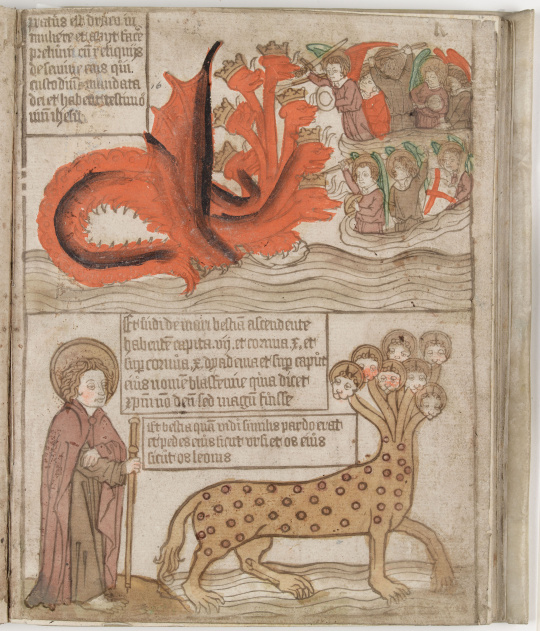 Iratus est draco in
muliere et abijt face
preliū cū reliquijs
de semine eius qui
custodiūt mandata
dei et habent testimo
niū ihesu
Et vidi de mari bestiā ascendente
habentē capita vij et cornua x et
sup cornua x dyademata et sup capita
eius nomē blasfemie quia dicet
xpm nō deū sed magū fuisse
Et bestia quā vidi similis pardo erat
et pedes eius sicut ursi et os eius
sicut os leonis